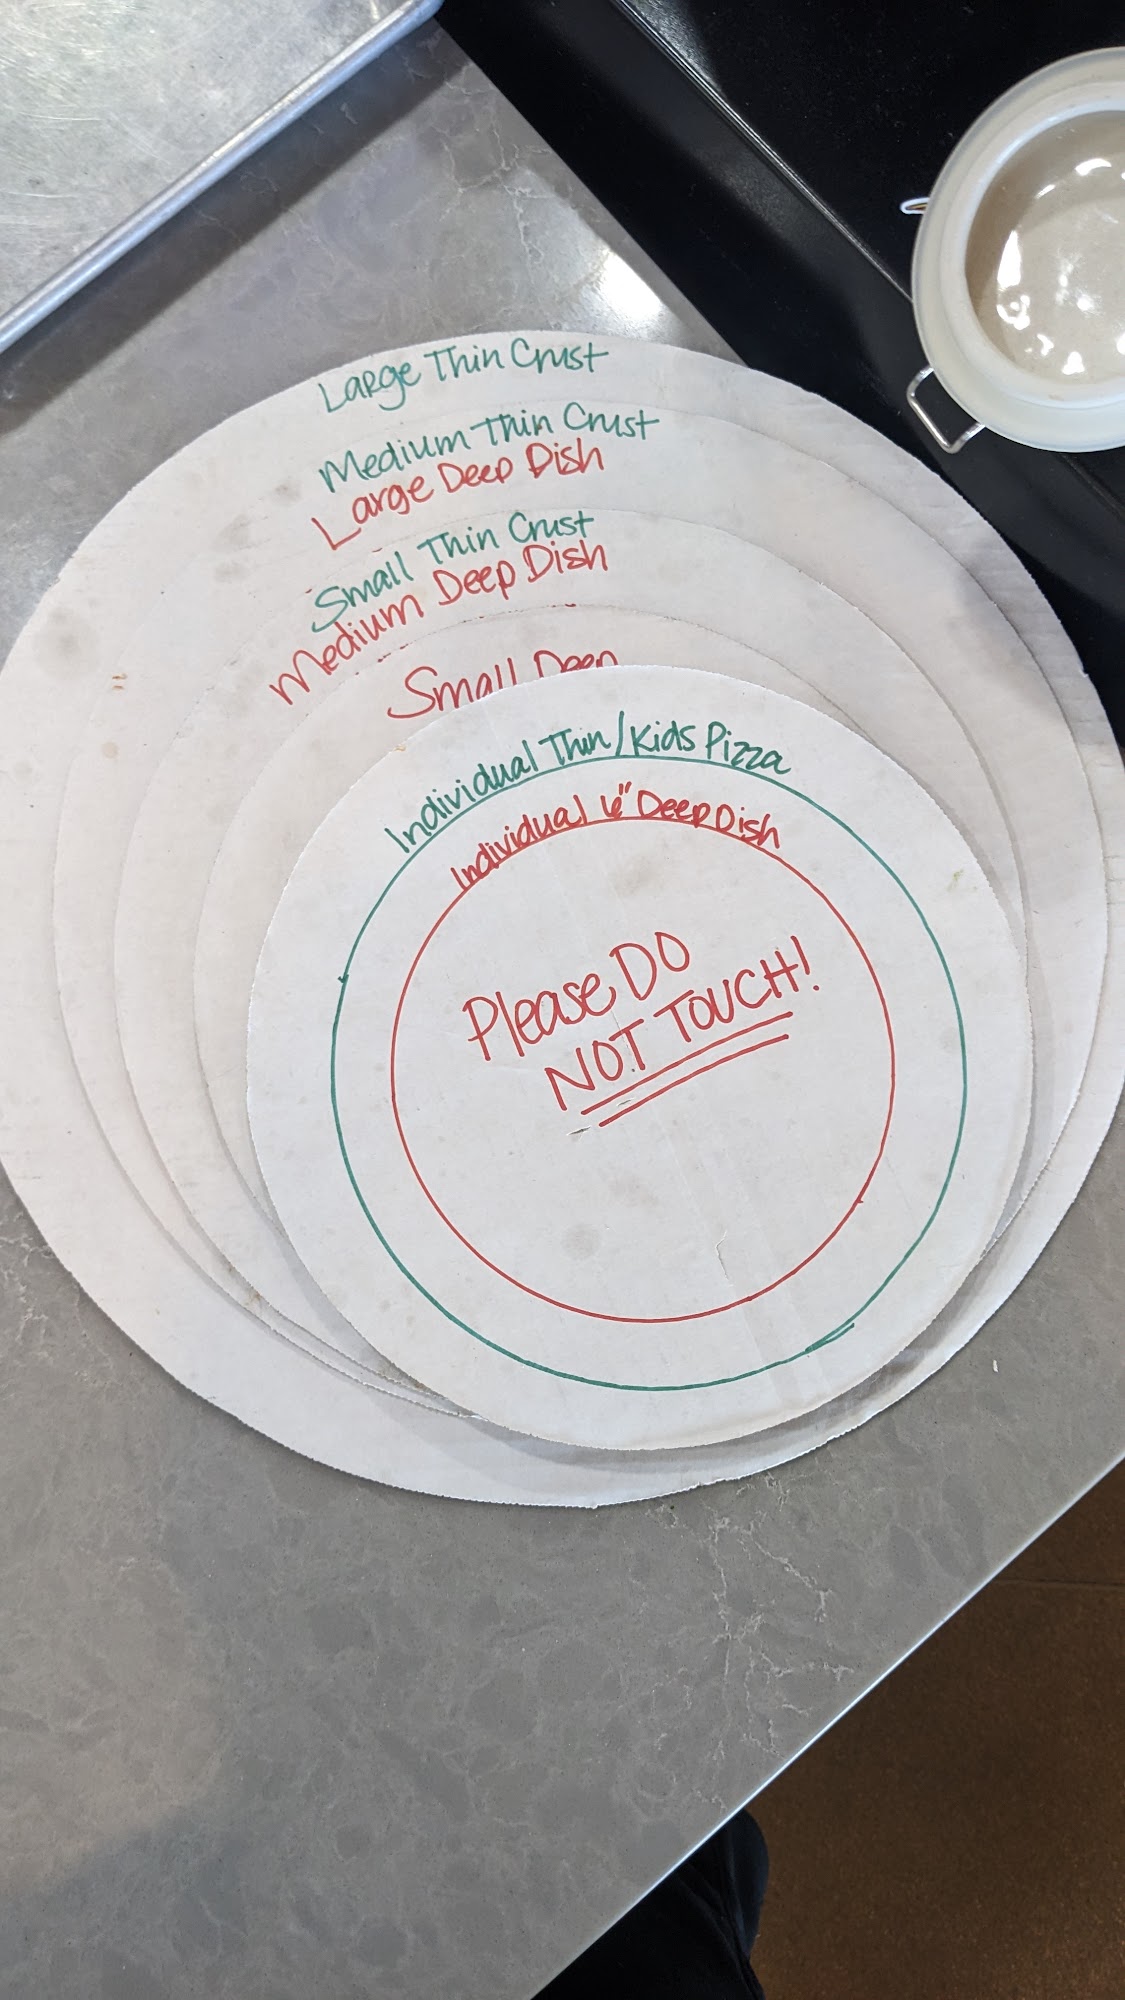 Large Thin Crust
Medium Thin Crust
Large Deep Dish
Small Thin Crust
Medium Deep Dish
Small Deep
Individual Thin/Kids Pizza
Individual 6" Deep Dish
Please DO
NOT TOUCH!